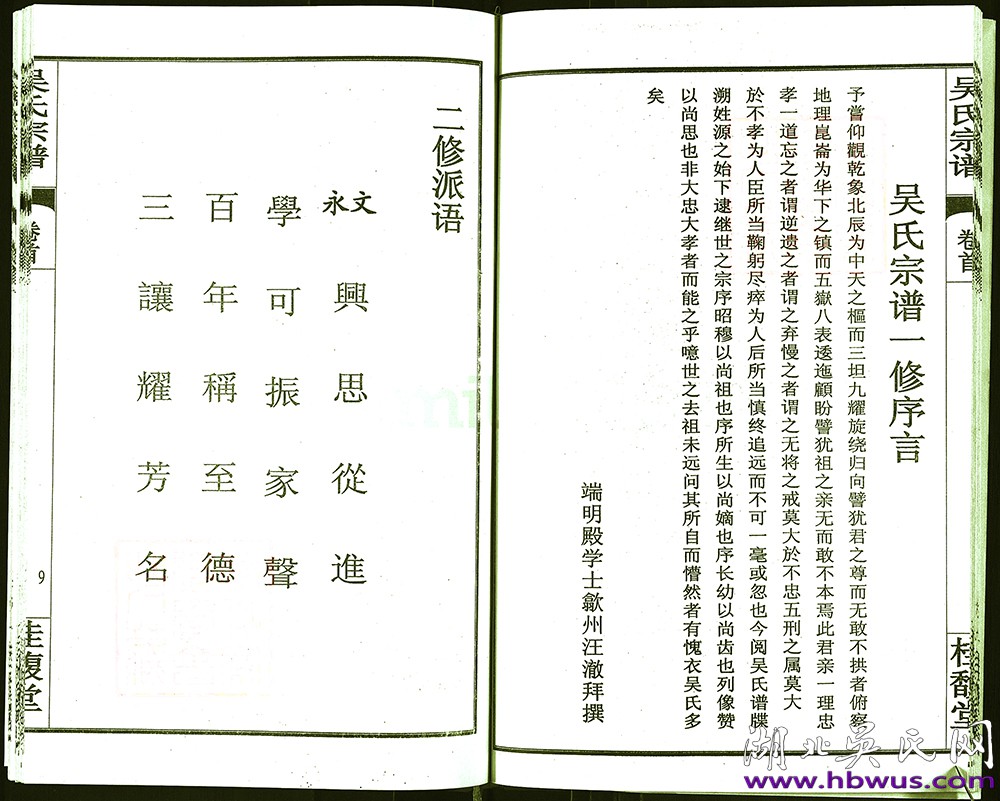 吴氏宗谱
卷首
桂馥堂
吴氏宗谱一修序言
予嘗仰觀乾象北辰为中天之樞而三垣九耀旋绕归向譬犹君之尊而无敢不拱者俯察
地理崑崙为华下之镇而五嶽八表逶迤顧盼譬犹祖之亲无而敢不本焉此君亲一理忠
孝一道忘之者谓逆遗之者谓之弃慢之者谓之无将之戒莫大於不忠五刑之属莫大
於不孝为人臣所当鞠躬尽瘁为人后所当慎终追远而不可一毫或忽也今阅吴氏谱牒
溯姓源之始下逮继世之宗序昭穆以尚祖也序所生以尚嫡也序长幼以尚齿也列像赞
以尚思也非大忠大孝者而能之乎噫世之去祖未远问其所自而懵然者有愧衣吴氏多
矣
端明殿学士歙州汪澈拜撰
二修派语
文永 興 思 從 進
學 可 振 家 聲
百 年 稱 至 德
三 讓 耀 芳 名
吴氏宗谱
卷首
9
桂馥堂
湖北吴氏网
www.hbwus.com